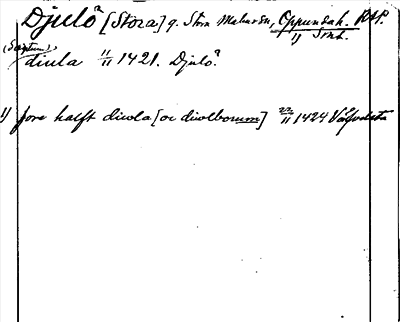 Djulö [Stora] g. Stora Malms sn, Oppundah. Rsp.
1) Smh.
(Sceptum)
diula 11/11 1421. Djulö.
1) fore halft diwla [oc diwlborum] 22/11 1424 Våfvelsta